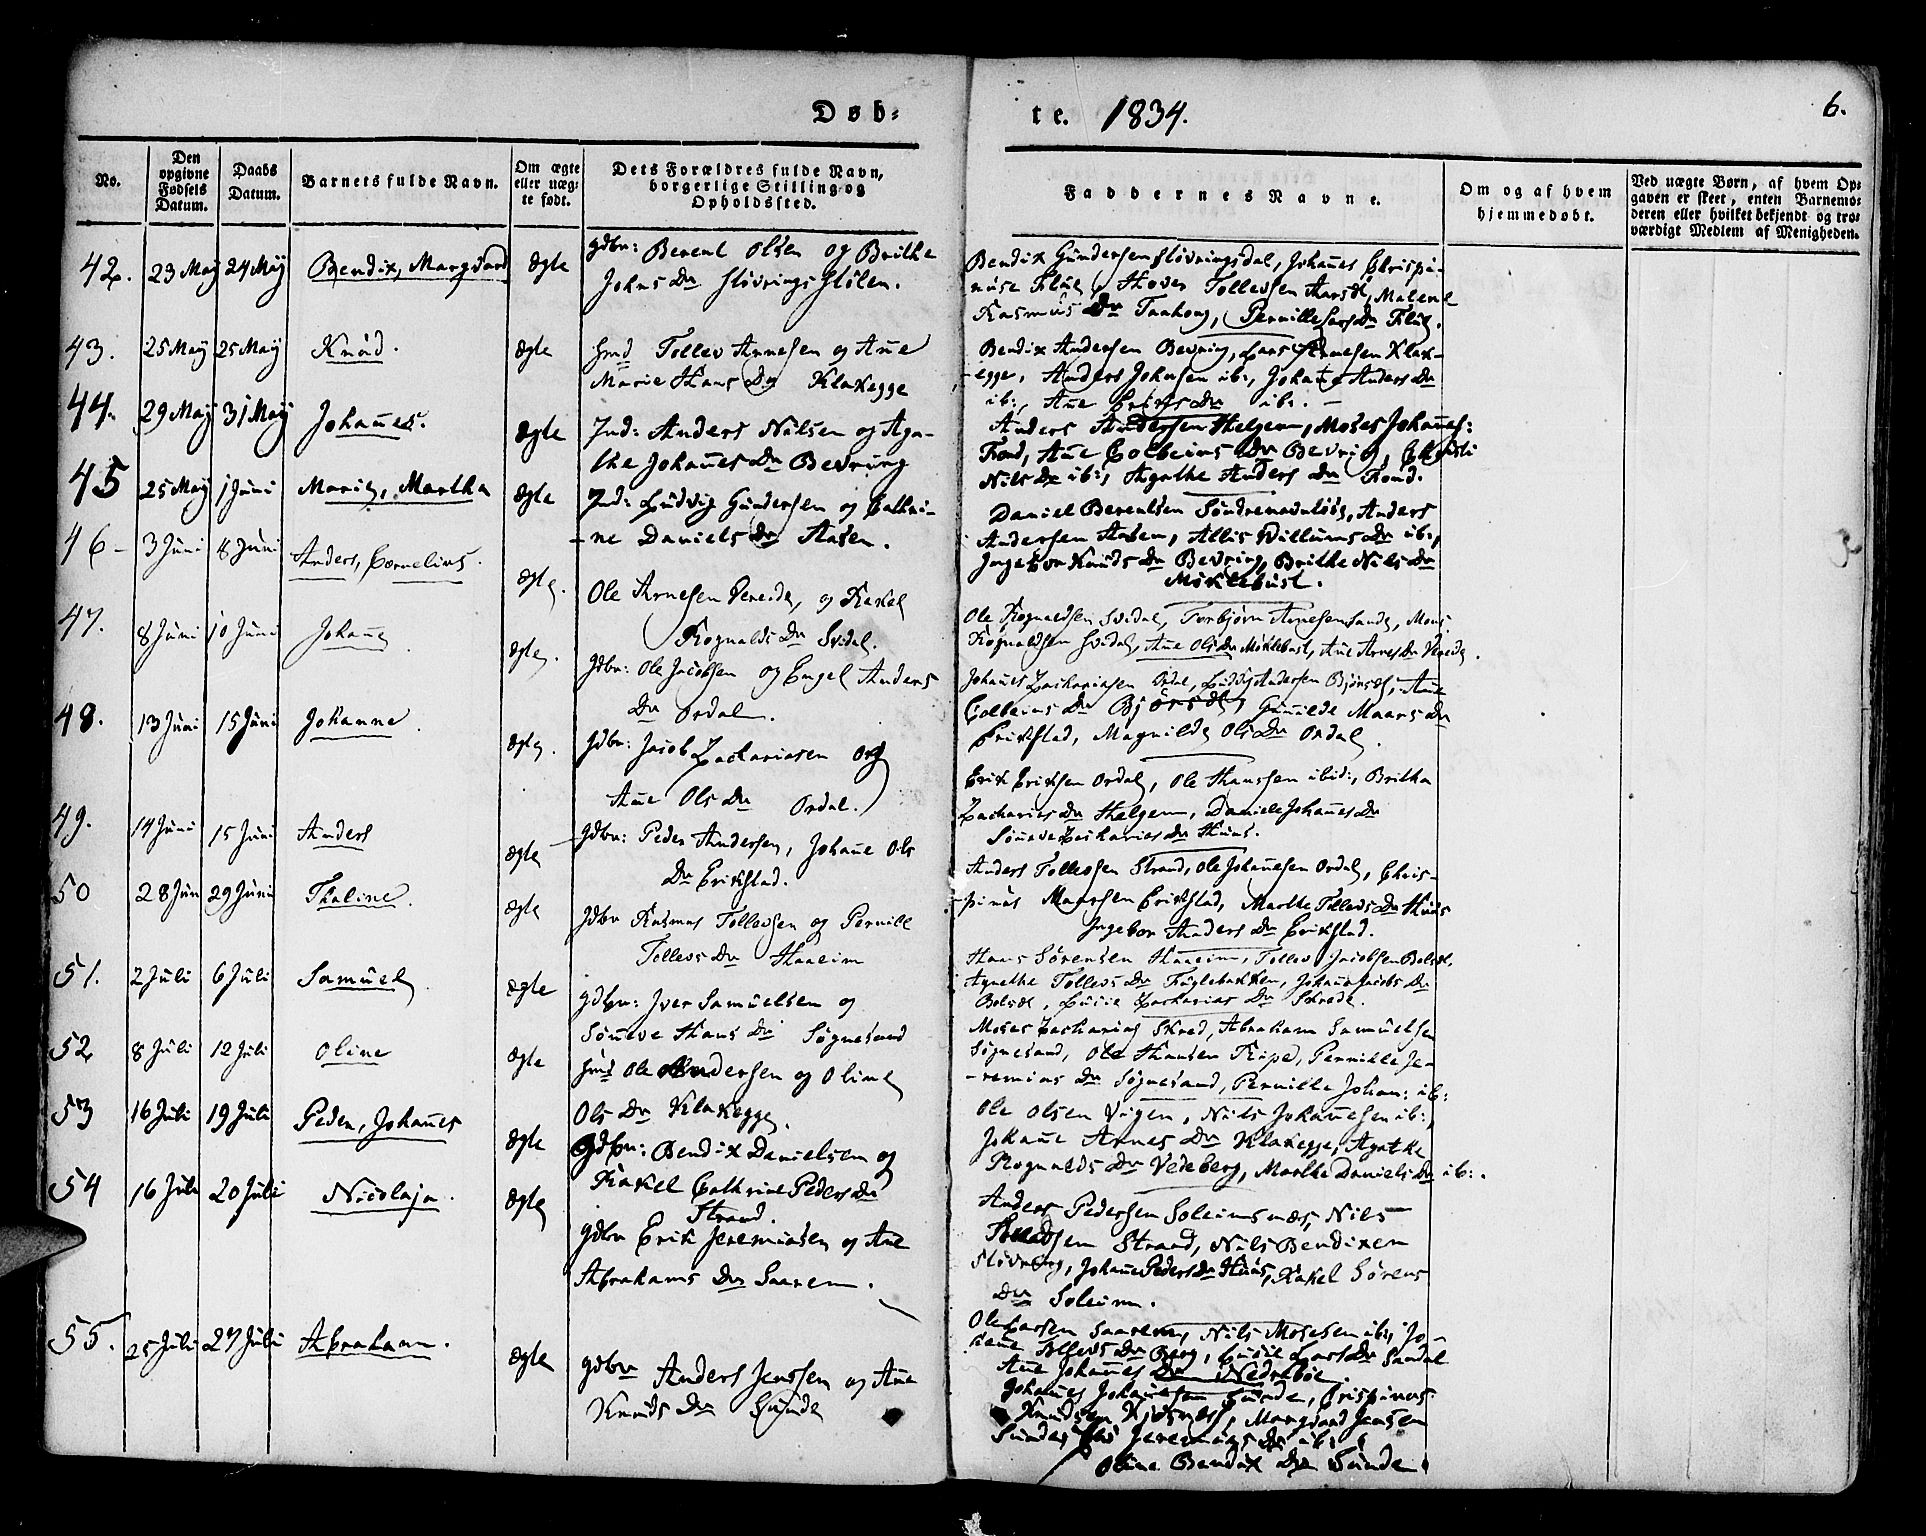 Døb-
te. 1834.
6.
No.
Den opgivne Fødsels Datum.
Daabs Datum.
Barnets fulde Navn.
Om ægte eller uægte født.
Dets Forældres fulde Navn, borgerlige Stilling og Opholdssted.
Faddernes Navne.
Om og af hvem hjemmedøbt.
Ved uægte Børn, af hvem Opgaven er skeet, enten Barnemoderen eller hvilket bekjendt og troværdigt Medlem af Menigheden.
42. 23 May 24 May Bendix, Margvard Ægte
Gdbr: Berent Olsen og Brithe
Johns Dr Støvringsstølen.
Bendix Gundersen Støvringsdal, Johannes Chrispi-
Tollevsen Aarsæt, Malene
Rasmus Dr Taahoug, Pernille Lars Dr
43. 25 May 25 May Knud. Ægte
Tollev Arnesen og Ane
Marie Hans Dr Klakegge
Bendix Andersen Bevring, Lars Arnesen Klak-
-egge, Anders Johnsen ib:, Johanne Anders Dr
ib:, Ane Eriks Dr ib:
44. 29 May 31 May Johannes. Ægte
Ind: Anders Nilsen og Aga-
the Johannes Dr Bevring
Anders Andersen Helgem, Moses Johannes:
Fond, Ane Colbeins Dr Bevring,
Nils Dr ib:, Agathe Anders Dr Fond.
45 25 May 1 Juni Marie, Martha Ægte
Ind: Ludvig Gundersen og Cathri-
-ne Daniels Dr Aasen.
Daniel Berentsen Søndrenedrebøe, Anders
Andersen Aasen, Allis Willums Dr ib:,
Ingebor Knuds Dr Bevring, Brithe Nils Dr
Møklebust.
46- 3 Juni 8 Juni Anders, Cornelius. Ægte.
Ole Arnesen Vereide, og Rakel
Rognalds Dr Svidal.
Ole Rognaldsen Svidal, Torbjørn Arnesen Sande, Mons
Rognaldsen Svidal, Ane Ols Dr Møklebust, Ane Arnes Dr Vereide.
47. 8 Juni 10 Juni Johanne Ægte.
Gdbr: Ole Jacobsen og Engel Anders
Dr Ordal.
Johannes Zachariasen Ordal, Ludvig Andersen Bjørsæt, Ane
Colbeins Dr Bjørsæt, Gunilde Maans Dr
Erikstad, Magnilde Ols Dr Ordal.
48. 13 Juni 15 Juni Johanne. Ægte.
Gdbr: Jacob Zachariasen og
Ane Ols Dr Ordal.
Erik Eriksen Ordal, Ole Hanssen ibid:, Britha
Zacharias Dr Helgem, Daniele Johannes Dr
Sønneve Zacharias Dr Huus.
49. 14 Juni 15 Juni Anders Ægte
Gdbr: Peder Andersen, Johanne Ols
Dr Erikstad.
Anders Tollevsen Strand, Ole Johannesen Ordal, Chris-
-pinus Maanssen Erikstad, Marthe Tollevs Dr Huus
Ingebor Anders Dr Erikstad.
50 28 Juni 29 Juni Thaline. Ægte
Gdbr Rasmus Tollevsen og Pernille
Tollevs Dr Haaeim
Hans Sørensen Haaeim, Tollev Jacobsen Bolsæt,
Agnethe Tollevs Dr Fuglebakken, Johanne Jacobs Dr
Bolsæt, Lucie Zacharias Dr Skrede.
51. 2 Juli 6 Juli Samuel. Ægte
Gdbr: Iver Samuelsen og
Sønneve Hans Dr Søgnesand
Moses Zacharias Skred, Abraham Samuelsen
Søgnesand, Ole Hansen Ripe, Pernille Je-
-remias Dr Søgnesand, Pernille Johan: ib:
52 8 Juli 12 Juli Oline Ægte
Ole Andersen og Oline
Ols Dr Klakegge.
Ole Olsen Vigen, Nils Johannesen ib:,
Johanne Arnes Dr Klakegge, Agathe
Rognalds Dr Vedeberg, Marthe Daniels Dr ib:.
53 16 Juli 19 Juli Peder, Johannes Ægte
Gdbr: Bendix Danielsen og
Rakel Cathrine Peders Dr
Strand.
Anders Pedersen Soleimsnæs, Nils
Strand, Nils Bendixen
Støvring, Johanne Peders Dr Huus, Rakel Sørens
Dr Soleim.
54 16 Juli 20 Juli Nicolaja. Ægte
Gdbr Erik Jeremiasen og Ane
Abrahams Dr Saarem.
Ole Larsen Saarem, Nils Mosesen ib:, Jo-
hanne Tollevs Dr Berg, Lucie Lars Dr Sandal
Ane Johannes Dr Nedrebøe.
55. 25 Juli 27 Juli Abraham. Ægte
Gdbr Anders Jenssen og Ane
Knuds Dr Sunde
Johannes Johannesen Sunde, Crispinus
Knudsen Kjøsnæs, Margvard Jensen
Sunde, Jeremias Dr ib:
Oline Bendix Dr Sunde